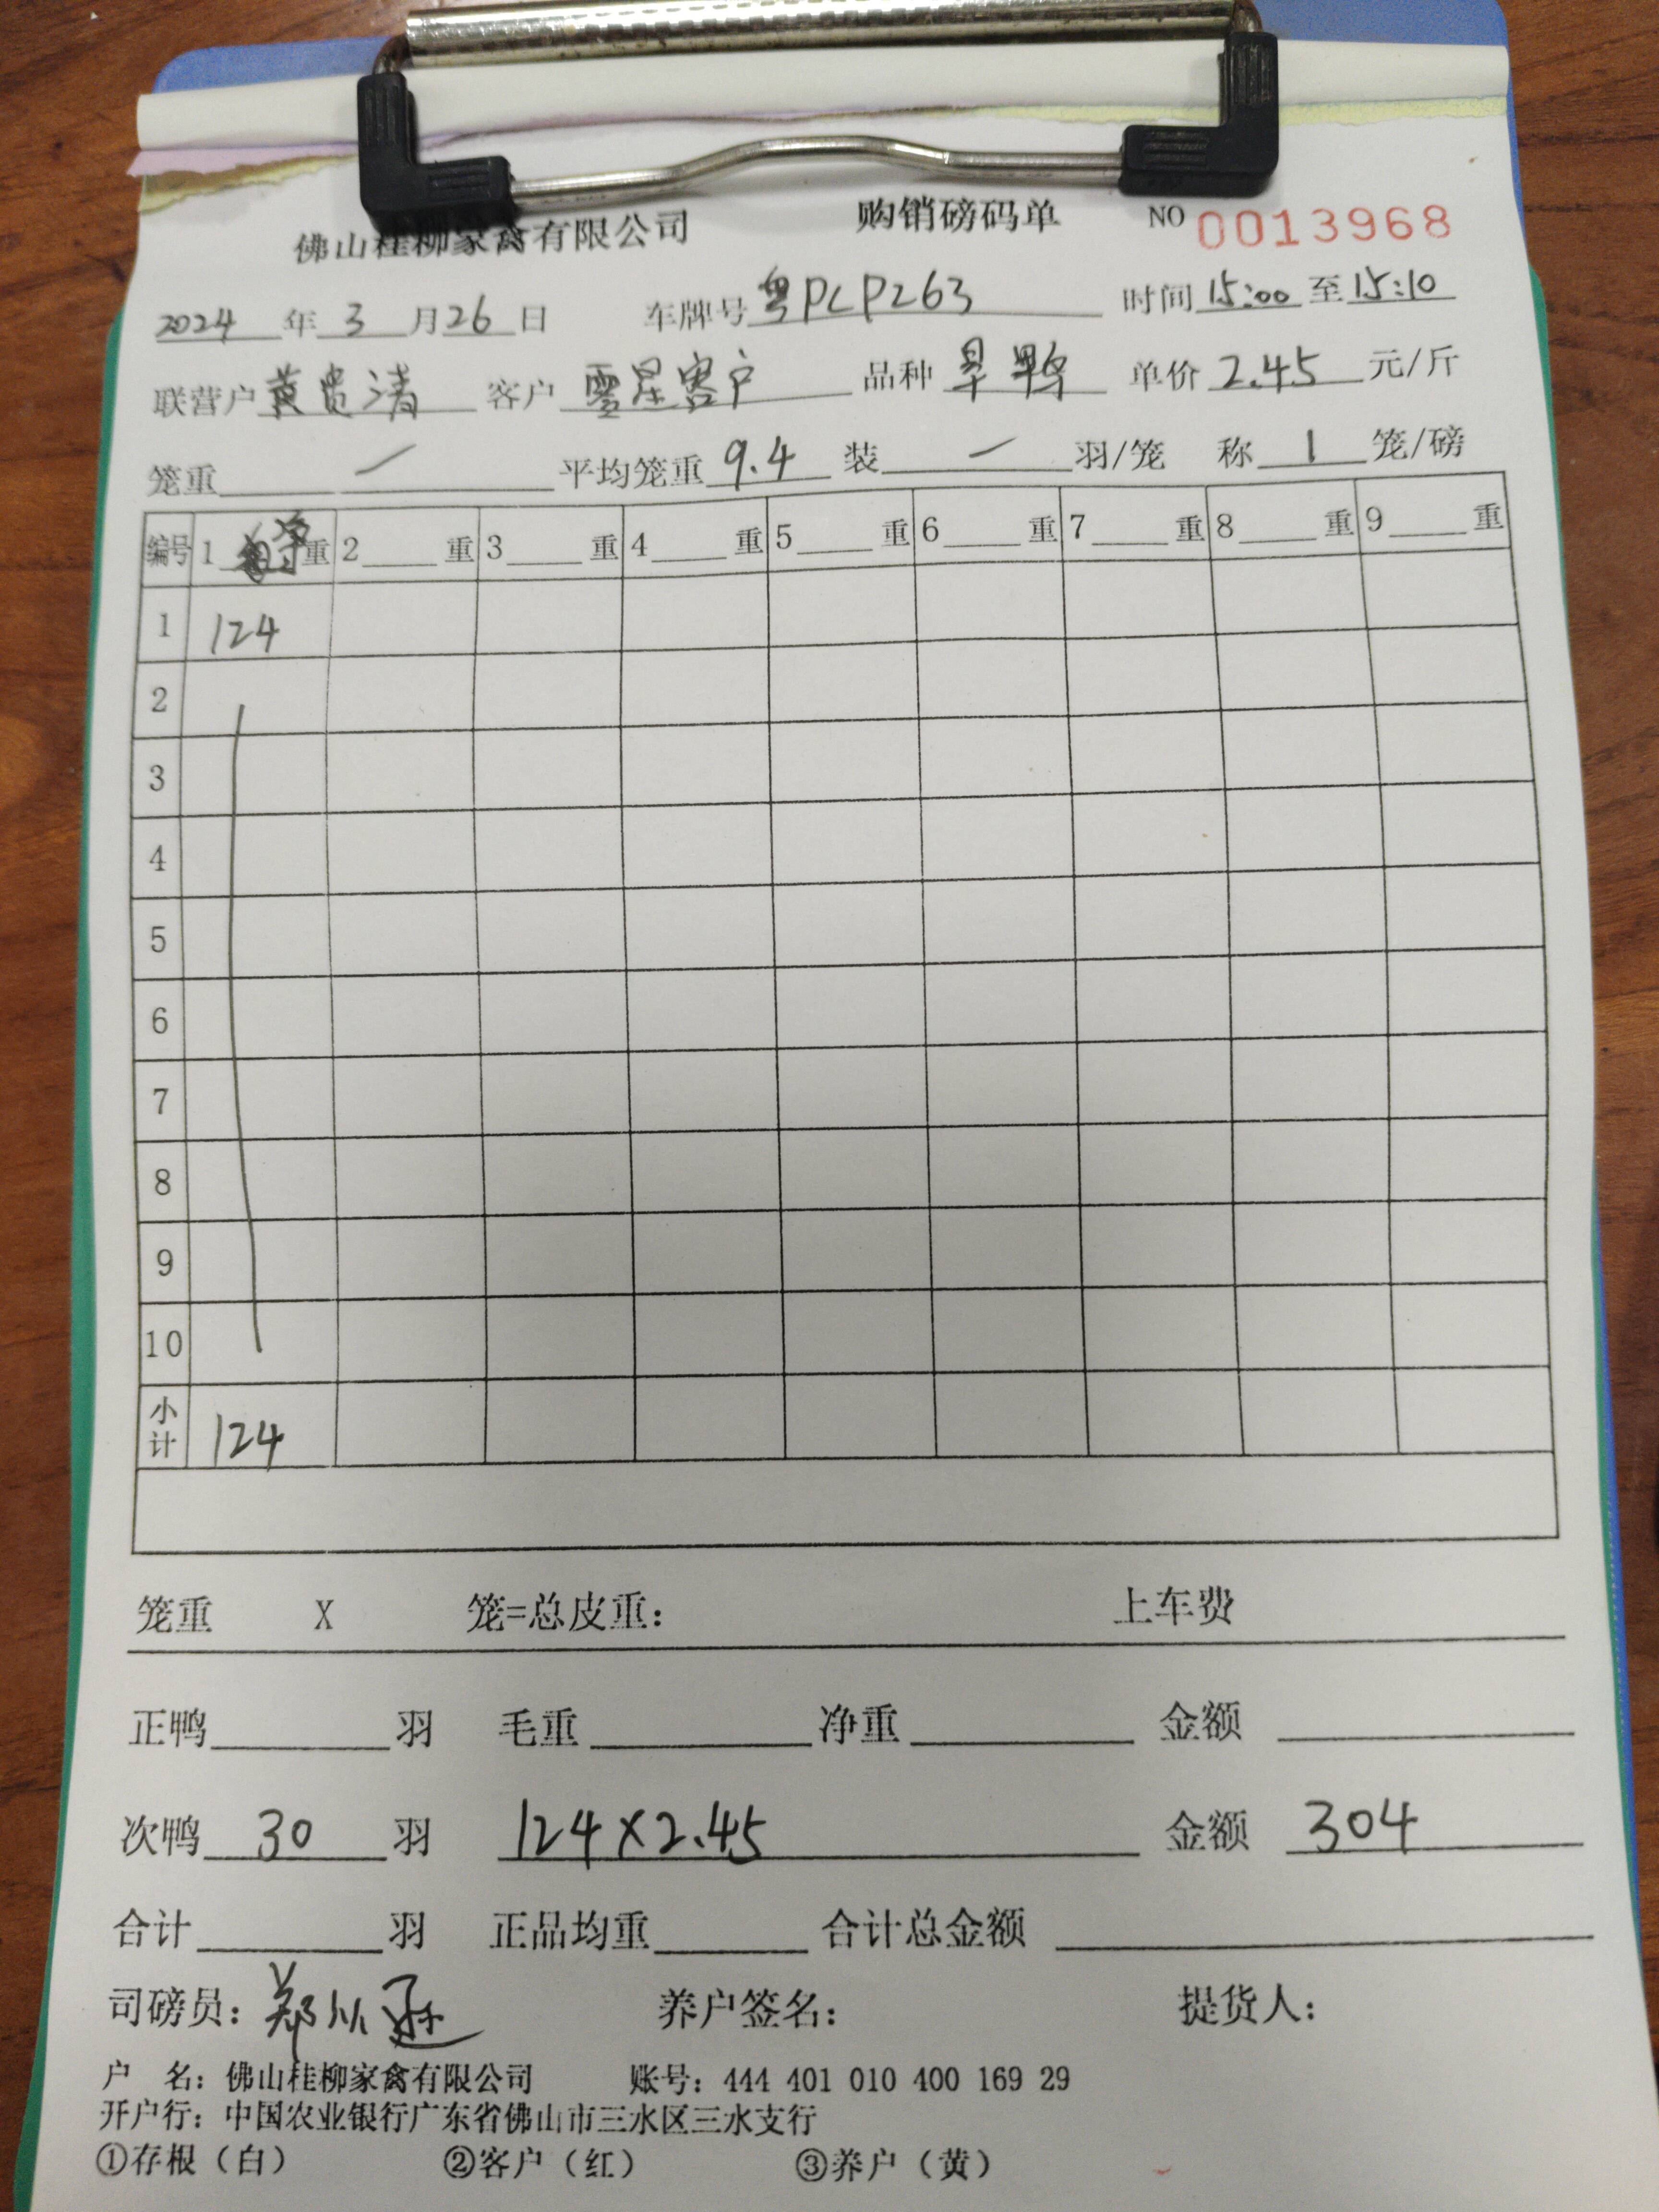 佛山桂柳家禽有限公司 购销磅码单 NO 0013968
2024 年 3 月 26 日 车牌号 粤PLP263 时间 15:00 至 15:10
联营户 黄贵清 客户 零星客户 品种 旱鸭 单价 2.45 元/斤
笼重 — 平均笼重 9.4 装 — 羽/笼 称 1 笼/磅
编号 1 净 重 2 重 3 重 4 重 5 重 6 重 7 重 8 重 9 重
1 124
2
3
4
5
6
7
8
9
10
小计 124
笼重 X 笼=总皮重: 上车费
正鸭 羽 毛重 净重 金额
次鸭 30 羽 124×2.45 金额 304
合计 羽 正品均重 合计总金额
司磅员: 养户签名: 提货人:
户 名: 佛山桂柳家禽有限公司 账号: 444 401 010 400 169 29
开户行: 中国农业银行广东省佛山市三水区三水支行
①存根（白） ②客户（红） ③养户（黄）